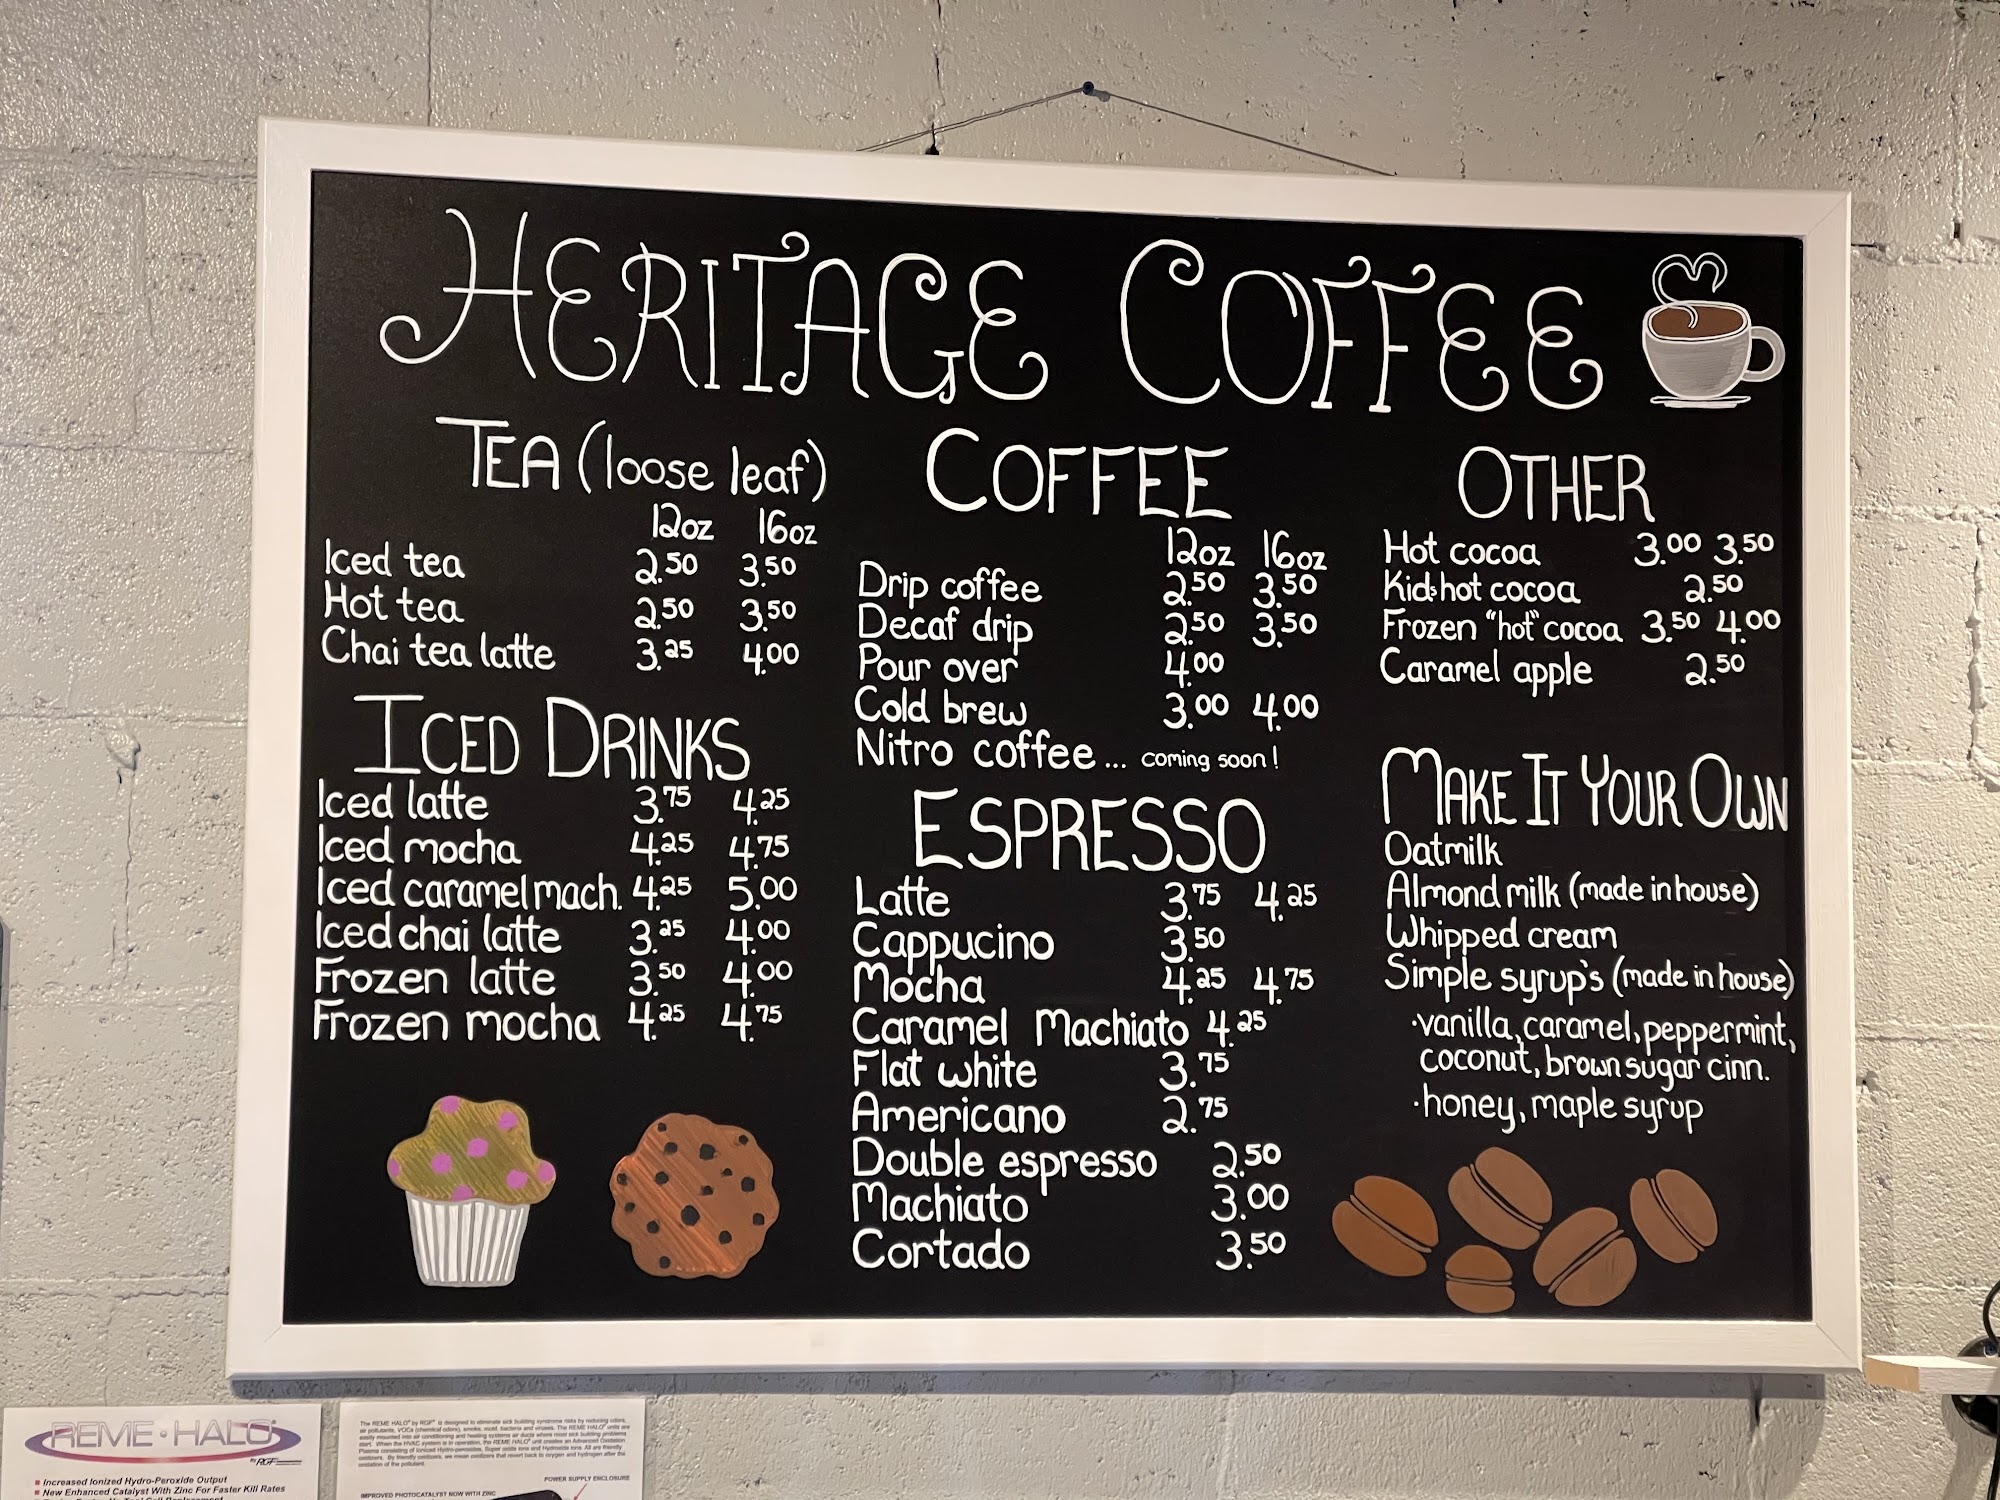 HERITAGE COFFEE
TEA (loose leaf)
12oz 16oz
Iced tea 2.50 3.50
Hot tea 2.50 3.50
Chai tea latte 3.25 4.00
ICED DRINKS
Iced latte 3.75 4.25
Iced mocha 4.25 4.75
Iced caramel mach. 4.25 5.00
Iced chai latte 3.25 4.00
Frozen latte 3.50 4.00
Frozen mocha 4.25 4.75
COFFEE
12oz 16oz
Drip coffee 2.50 3.50
Decaf drip 2.50 3.50
Pour over 4.00
Cold brew 3.00 4.00
Nitro coffee... coming soon!
ESPRESSO
Latte 3.75 4.25
Cappucino 3.50
Mocha 4.25 4.75
Caramel Machiato 4.25
Flat white 3.75
Americano 2.75
Double espresso 2.50
Machiato 3.00
Cortado 3.50
OTHER
Hot cocoa 3.00 3.50
Kids hot cocoa 2.50
Frozen "hot" cocoa 3.50 4.00
Caramel apple 2.50
MAKE IT YOUR OWN
Oatmilk
Almond milk (made in house)
Whipped cream
Simple syrup's (made in house)
·vanilla, caramel, peppermint,
coconut, brown sugar cinn.
·honey, maple syrup
REME·HALO
by RGF
Increased Ionized Hydro-Peroxide Output
New Enhanced Catalyst With Zinc For Faster Kill Rates
The REME HALO® by RGF® is designed to eliminate sick building syndrome risks by reducing odors,
air pollutants, VOCs (chemical odors), smoke, mold, bacteria and viruses. The REME HALO® units are
easily mounted into air conditioning and heating systems air ducts where most sick building problems
start. When the HVAC system is in operation, the REME HALO® unit creates an Advanced Oxidation
POWER SUPPLY ENCLOSURE
IMPROVED PHOTOCATALYST NOW WITH ZINC